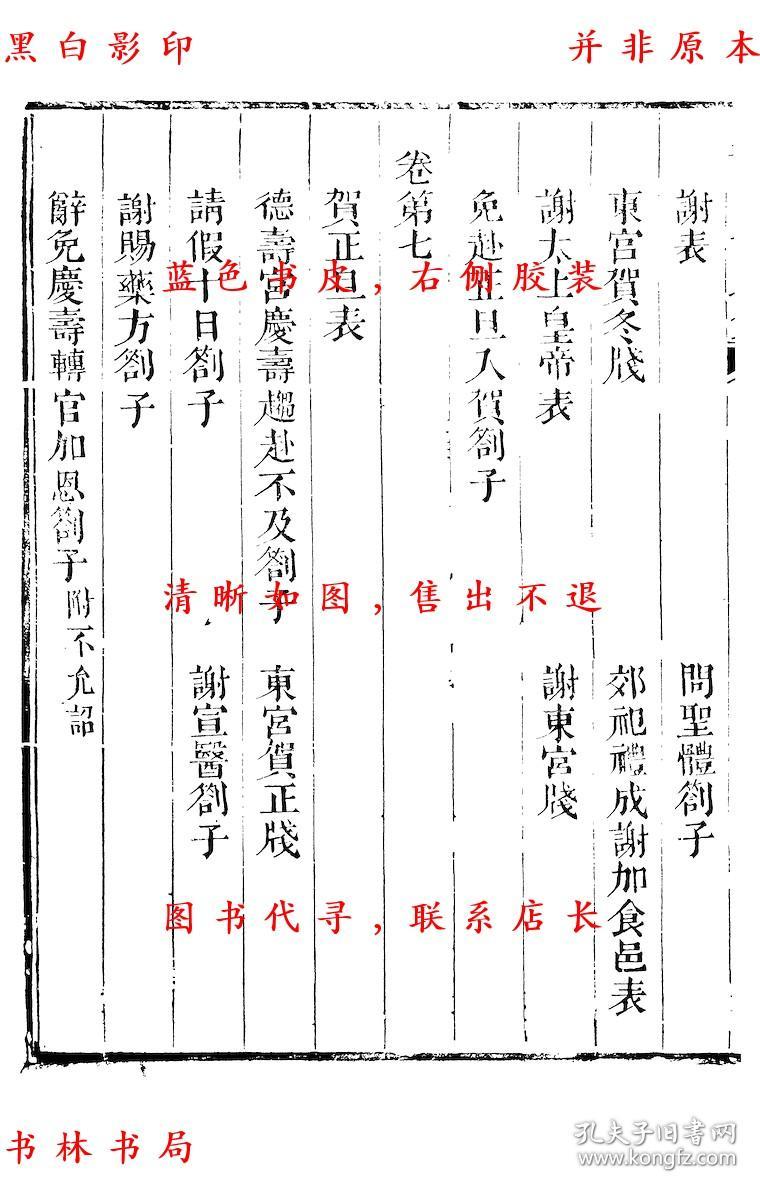 黑白影印
并非原本
謝表
問聖體劄子
東宮賀冬牋
郊祀禮成謝加食邑表
謝太上皇帝表
謝東宮牋
免赴正旦入賀劄子
卷第七
賀正旦表
德壽宮慶壽趨赴不及劄子
東宮賀正牋
請假十日劄子
謝宣醫劄子
謝賜藥方劄子
辭免慶壽轉官加恩劄子附不允詔
蓝色书皮,右侧胶装
清晰如图,售出不退
图书代寻,联系店长
书林书局
孔夫子旧书网
www.kongfz.com